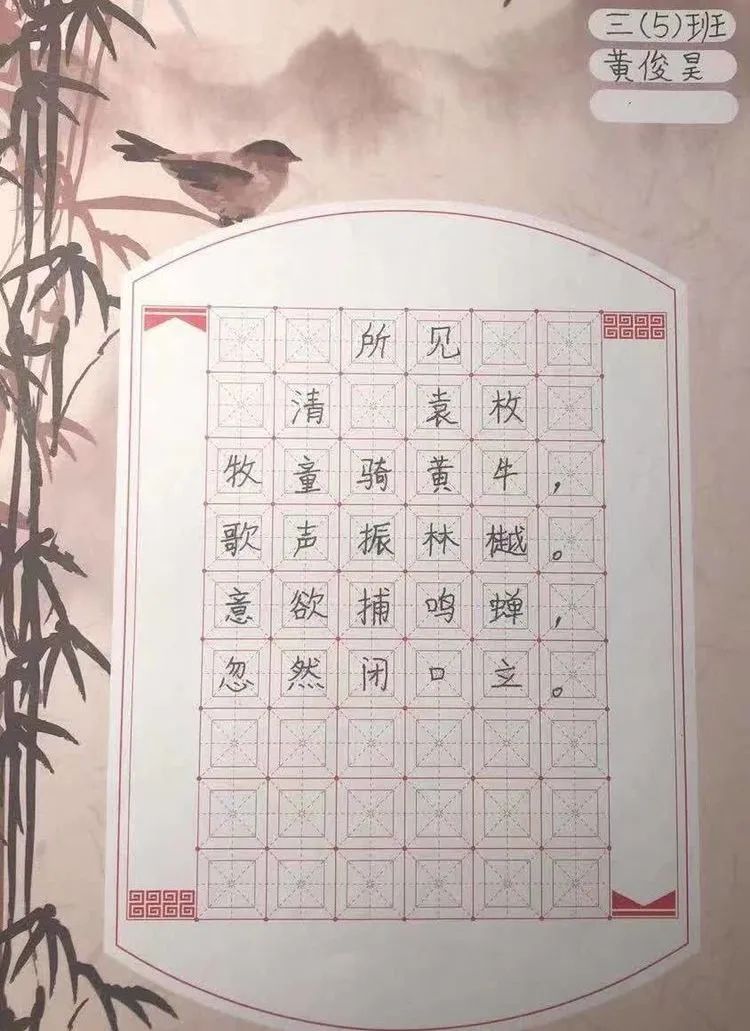 三(5)班
黄俊昊
所见
清 袁枚
牧童骑黄牛，
歌声振林樾。
意欲捕鸣蝉，
忽然闭口立。